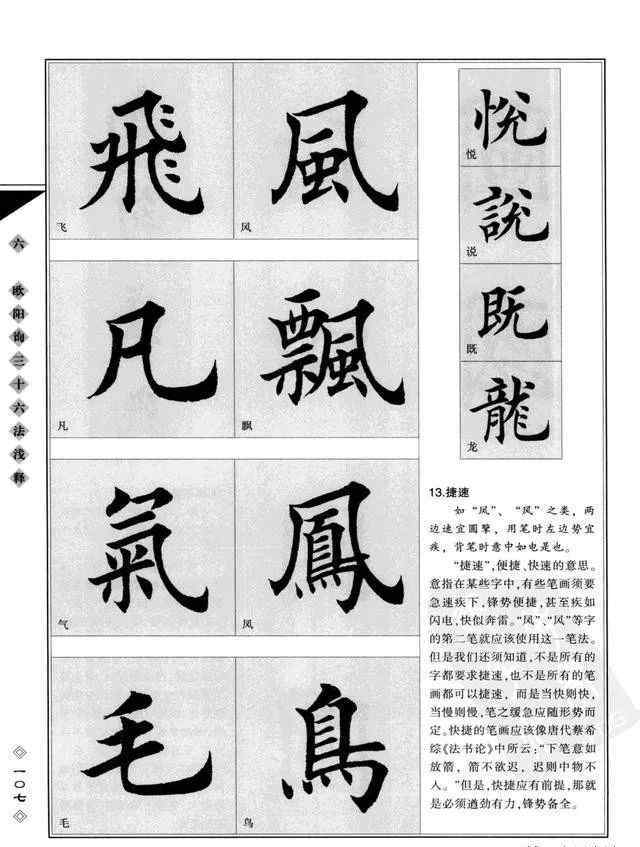 六 欧阳询三十六法浅释
一〇七
飛
飞
風
风
凡
凡
飄
飘
氣
气
鳳
凤
毛
毛
鳥
鸟
悦
悦
說
说
既
既
龍
龙
13.捷速
如“凤”、“风”之类，两
边速宜圆掣，用笔时左边势宜
疾，背笔时意中如电是也。
“捷速”，便捷、快速的意思。
意指在某些字中，有些笔画须要
急速疾下，锋势便捷，甚至疾如
闪电，快似奔雷。“凤”、“风”等字
的第二笔就应该使用这一笔法。
但是我们还须知道，不是所有的
字都要求捷速，也不是所有的笔
画都可以捷速，而是当快则快，
当慢则慢，笔之缓急应随形势而
定。快捷的笔画应该像唐代蔡希
综《法书论》中所云：“下笔意如
放箭，箭不欲迟，迟则中物不
入。”但是，快捷应有前提，那就
是必须遒劲有力，锋势备全。